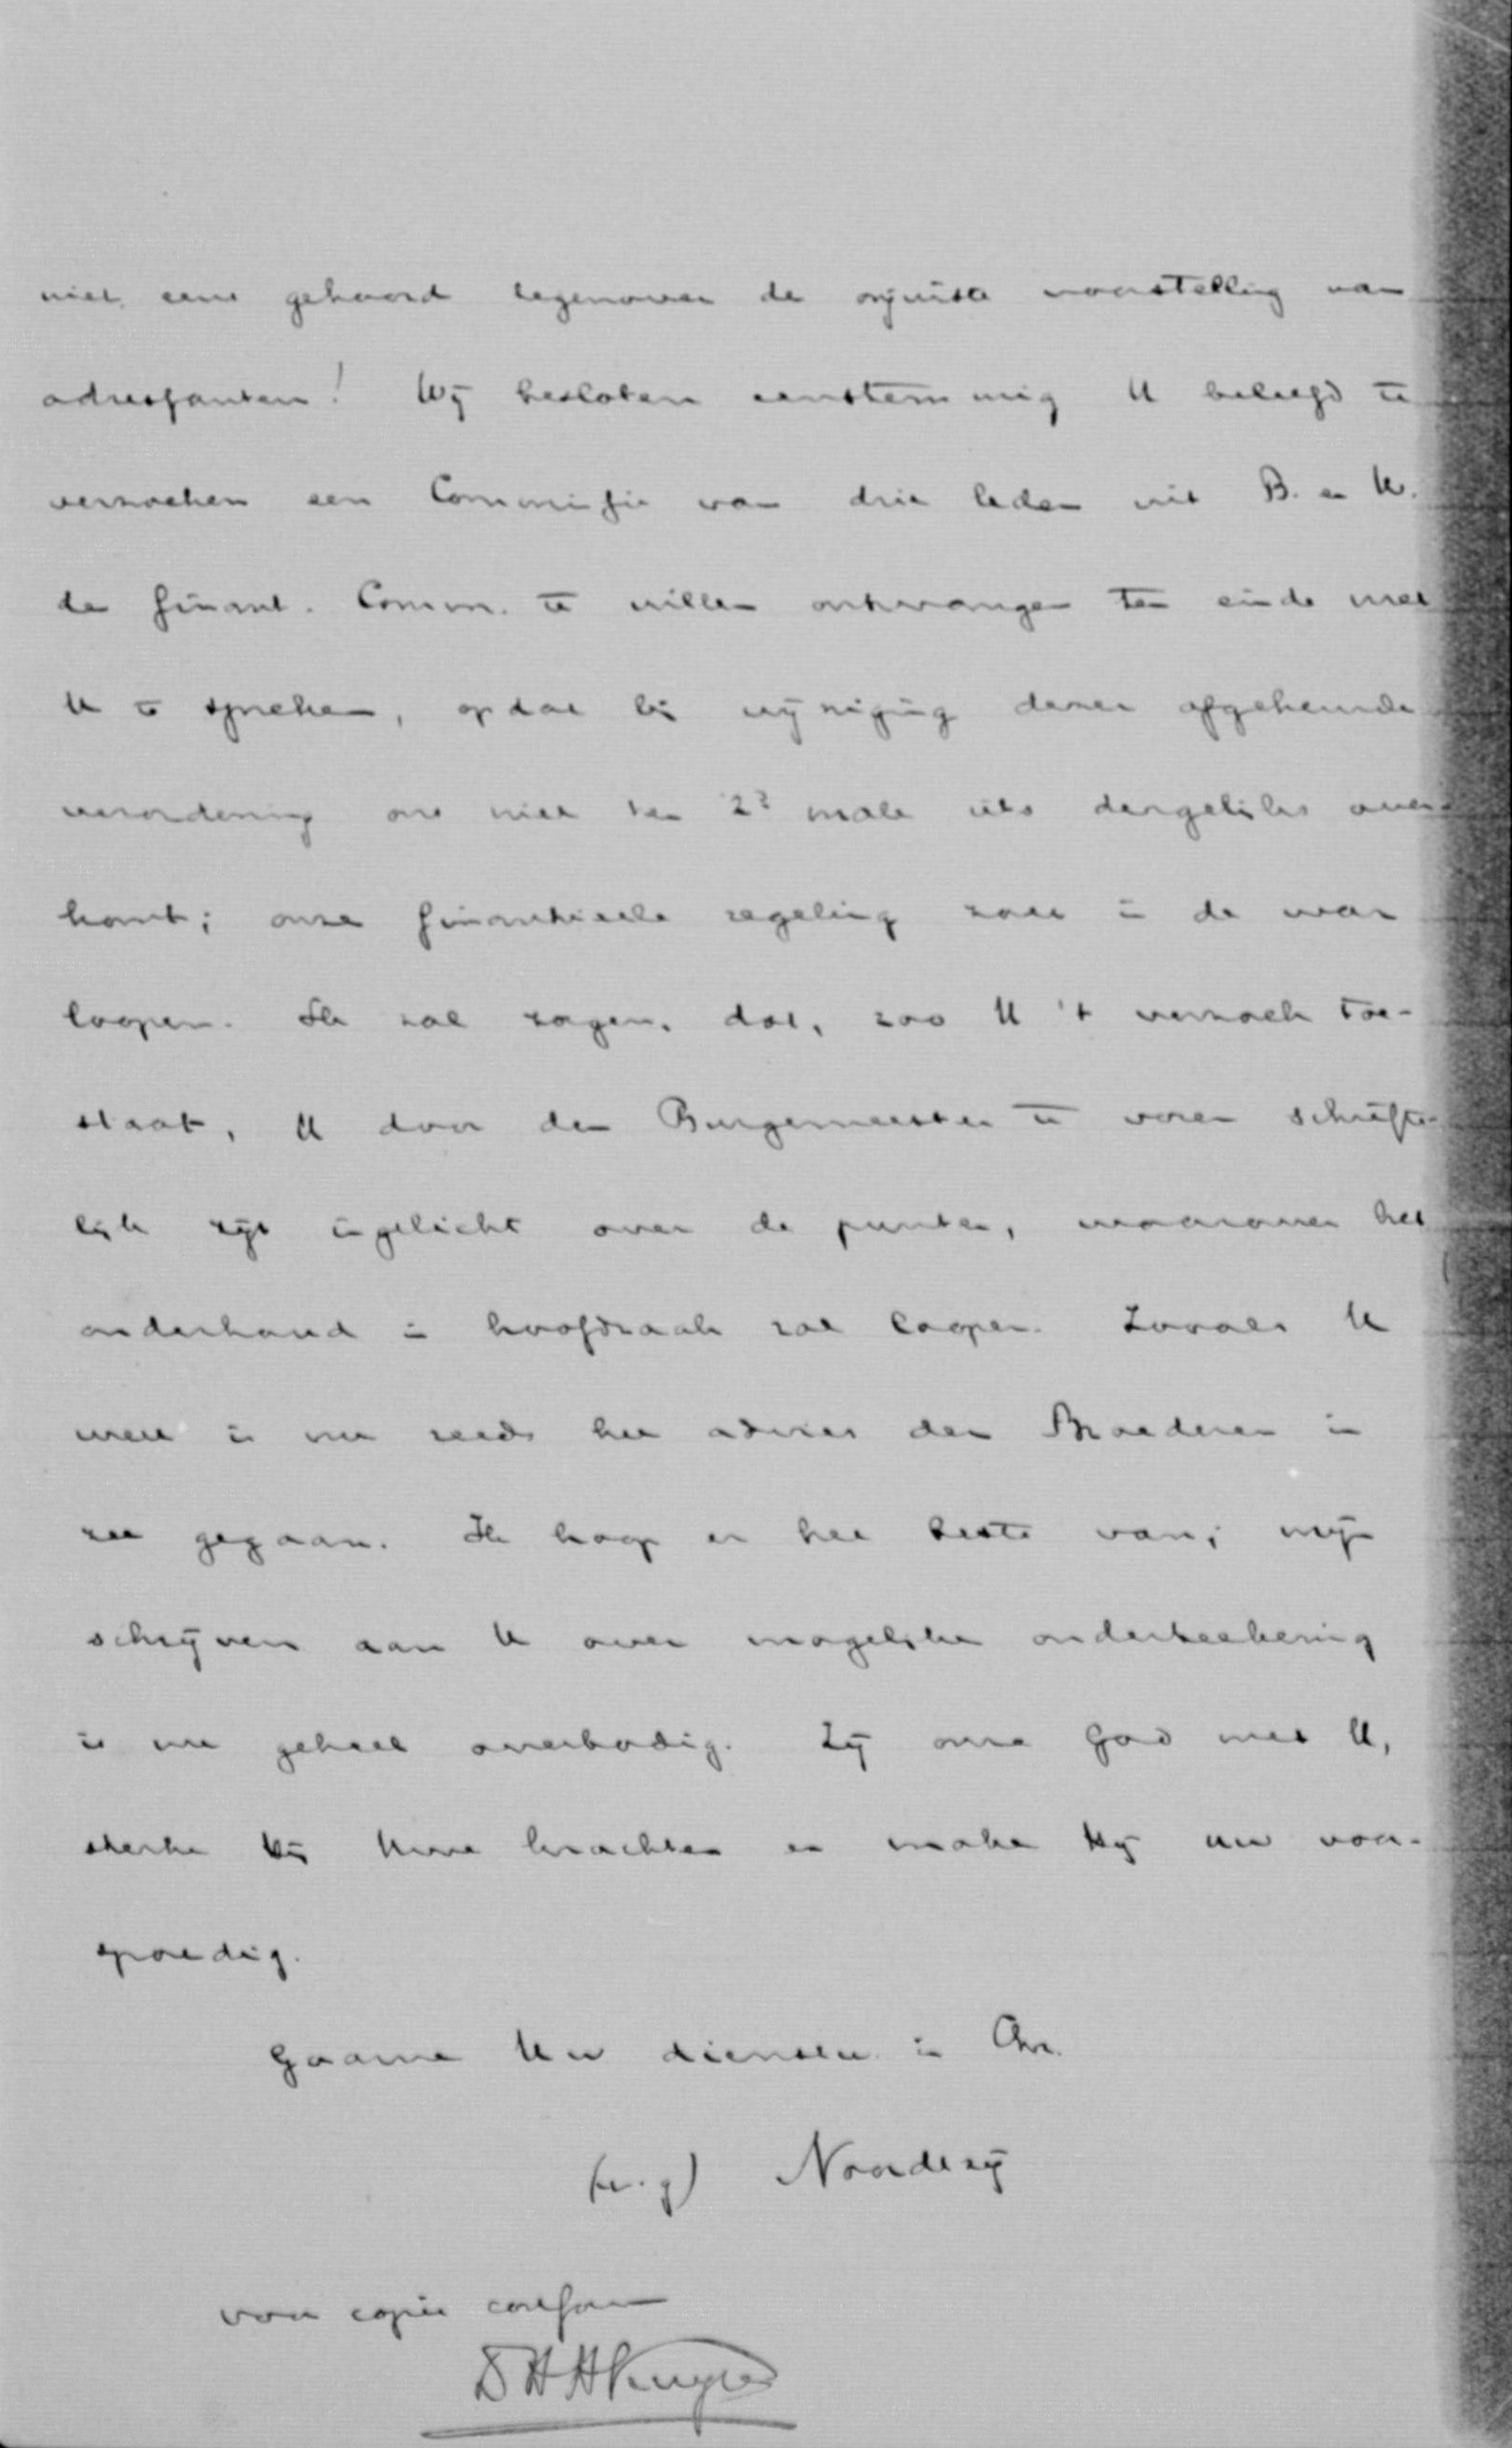 niet eens gehoord tegenover de onjuiste voorstelling van
adressanten! Wij besloten eenstemmig U beleefd te
verzoeken een Commissie van drie leden uit B. en W.
de finant. Comm. te willen ontvangen ten einde met
U te spreken, opdat bij wijziging dezer afgekeurde
verordening ons niet ten 2e male iets dergelijks over-
komt; onze finantieele regeling zou in de war
loopen. Ik zal zorgen, dat, zoo U 't verzoek toe-
staat, U door den Burgemeester te voren schrifte-
lijk zijt ingelicht over de punten, waarover het
onderhoud in hoofdzaak zal loopen. Zooals U
weet is nu reeds het advies der Broederen in
zee gegaan. Ik hoop er het beste van; mijn
schrijven aan U over mogelijke onderteekening
is nu geheel overbodig. Zij onze God met U,
sterke Hij Uwe krachten en make Hij uw voor-
spoedig.
Gaarne Uw dienstw. in Chr.
(w.g) Noordzij
voor copie conform
D H H Kuyper